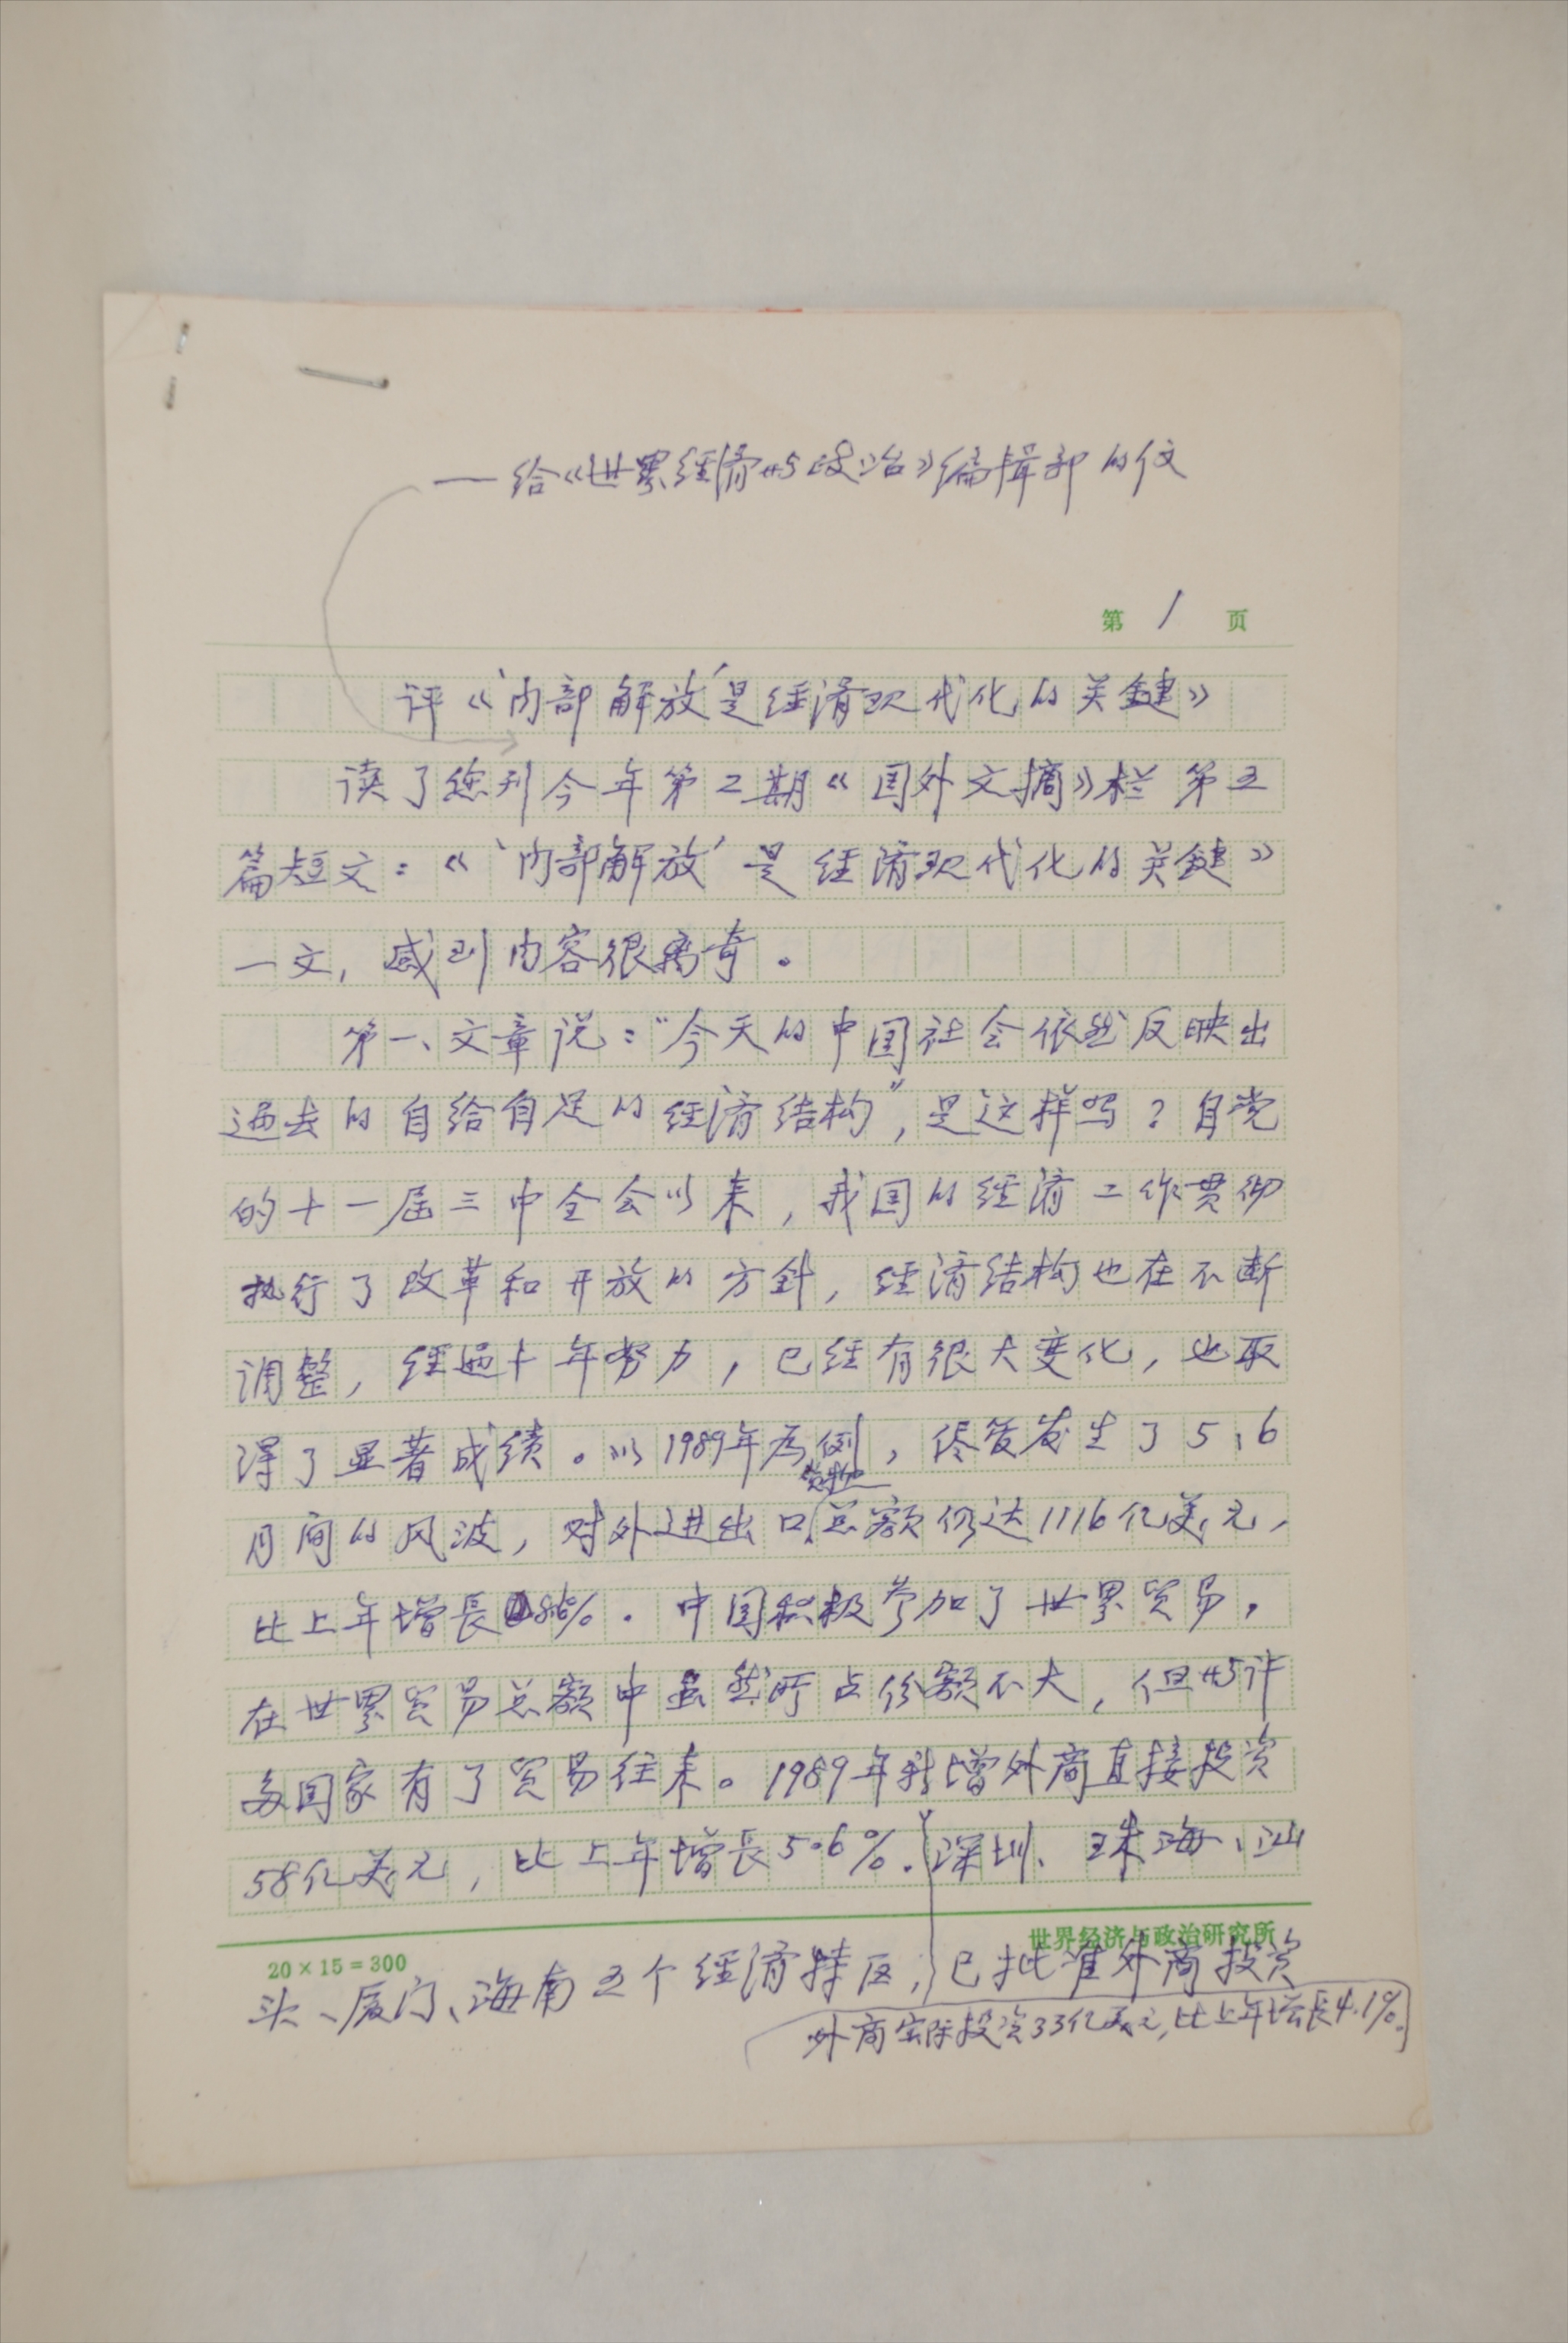 —给《世界经济与政治》编辑部的信
第 1 页
评《‘内部解放’是经济现代化的关键》
读了您刊今年第2期《国外文摘》栏第五
篇短文：《‘内部解放’是经济现代化的关键》
一文，感到内容很离奇。
第一、文章说：“今天的中国社会依然反映出
过去的自给自足的经济结构”，是这样吗？自党
的十一届三中全会以来，我国的经济工作贯彻
执行了改革和开放的方针，经济结构也在不断
调整，经过十年努力，已经有很大变化，也取
得了显著成绩。以1989年为例，尽管发生了5、6
月间的风波，对外进出口货物总额仍达1116亿美元，
比上年增长8.6%。中国积极参加了世界贸易，
在世界贸易总额中虽然所占份额不大，但与许
多国家有了贸易往来。1989年新增外商直接投资
58亿美元，比上年增长5.6%。深圳、珠海、汕
世界经济与政治研究所
20×15=300
头、厦门、海南五个经济特区，已批准外商投资
外商实际投资33亿美元，比上年增长4.1%。